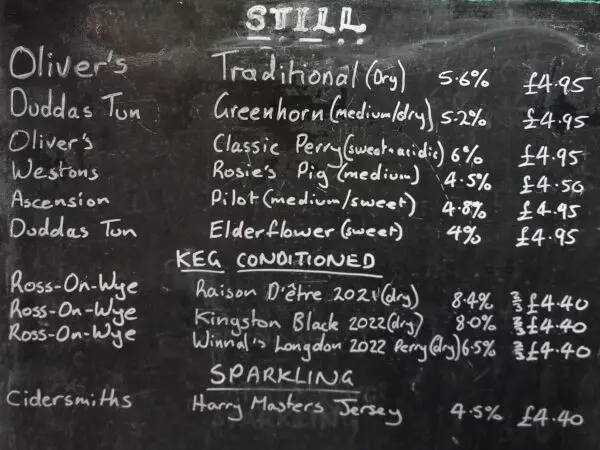 STILL
Oliver's Traditional (Dry) 5.6% £4.95
Duddas Tun Greenhorn (medium/dry) 5.2% £4.95
Oliver's Classic Perry (sweet+acidic) 6% £4.95
Westons Rosie's Pig (medium) 4.5% £4.50
Ascension Pilot (medium/sweet) 4.8% £4.95
Duddas Tun Elderflower (sweet) 4% £4.95
KEG CONDITIONED
Ross-On-Wye Raison D'être 2021 (dry) 8.4% ⅔ £4.40
Ross-On-Wye Kingston Black 2022 (dry) 8.0% ⅔ £4.40
Ross-On-Wye Winnal's Longdon 2022 Perry (dry) 6.5% ⅔ £4.40
SPARKLING
Cidersmiths Harry Masters Jersey 4.5% £4.40